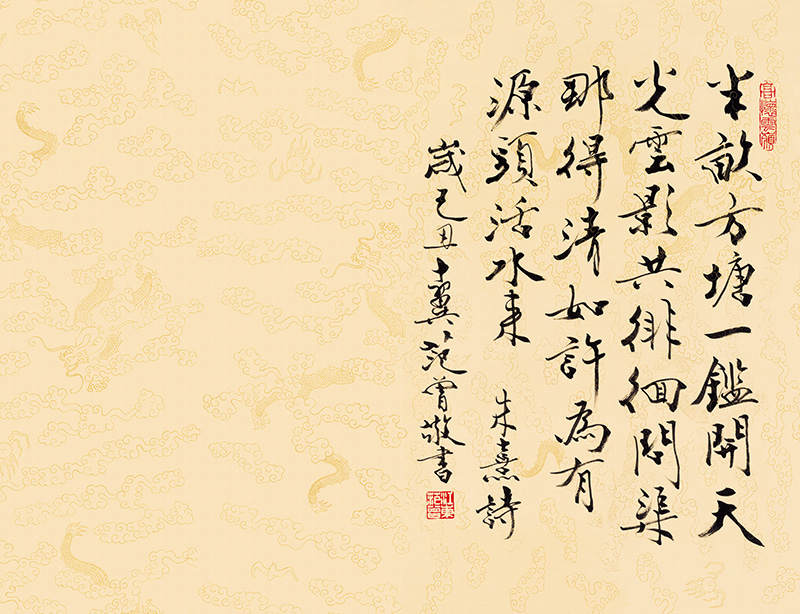 半畝方塘一鑑開天
光雲影共徘徊問渠
那得清如許為有
源頭活水来
朱熹詩
歲己丑十翼范曾敬書
江東范曾